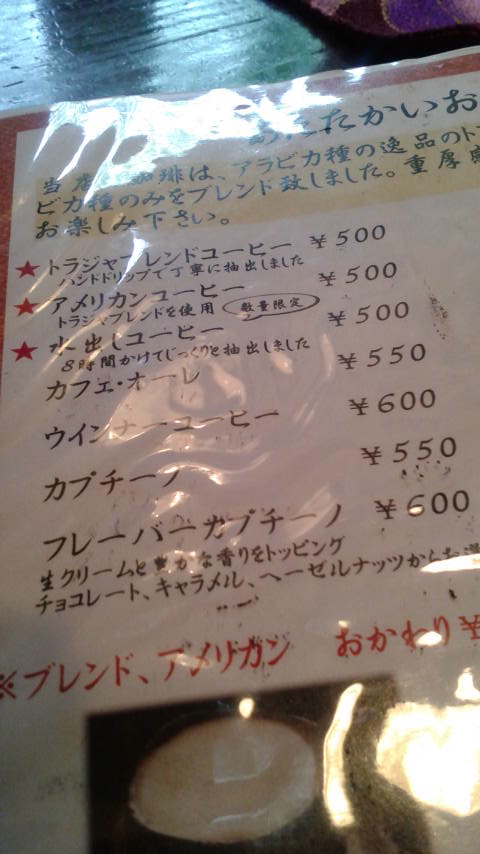 あたたかいお
当店 珈琲は、アラビカ種の逸品のト
ビカ種のみをブレンド致しました。重厚
お楽しみ下さい。
★ トラジャ レンドコーヒー ¥500
ハンドドリップで丁寧に抽出しました
★ アメリカンコーヒー ¥500
トラジャブレンドを使用 数量限定
★ 水出しコーヒー ¥500
8時間かけてじっくりと抽出しました
カフェ・オーレ ¥550
ウインナーコーヒー ¥600
カプチーノ ¥550
フレーバーカプチーノ ¥600
生クリームと豊かな香りをトッピング
チョコレート、キャラメル、ヘーゼルナッツからお選
※ブレンド、アメリカン おかわり¥